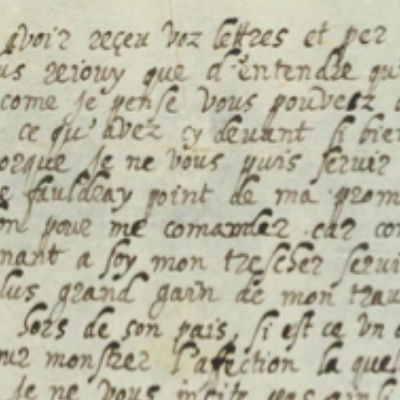 avoir reçeu voz lettres et per
us reiouy que d'entendre qu
come Je pense vous pouvez
ce qu'avez cy devant si bie
orque Je ne vous puis servir
e fauldray point de ma prom
on pour me comander car co
nant a soy mon trescher servi
lus grand gain de mon trau
hors de son pais, si est ce vn
our monstrer l'affection la quel
Je ne vous incite pas ainsi